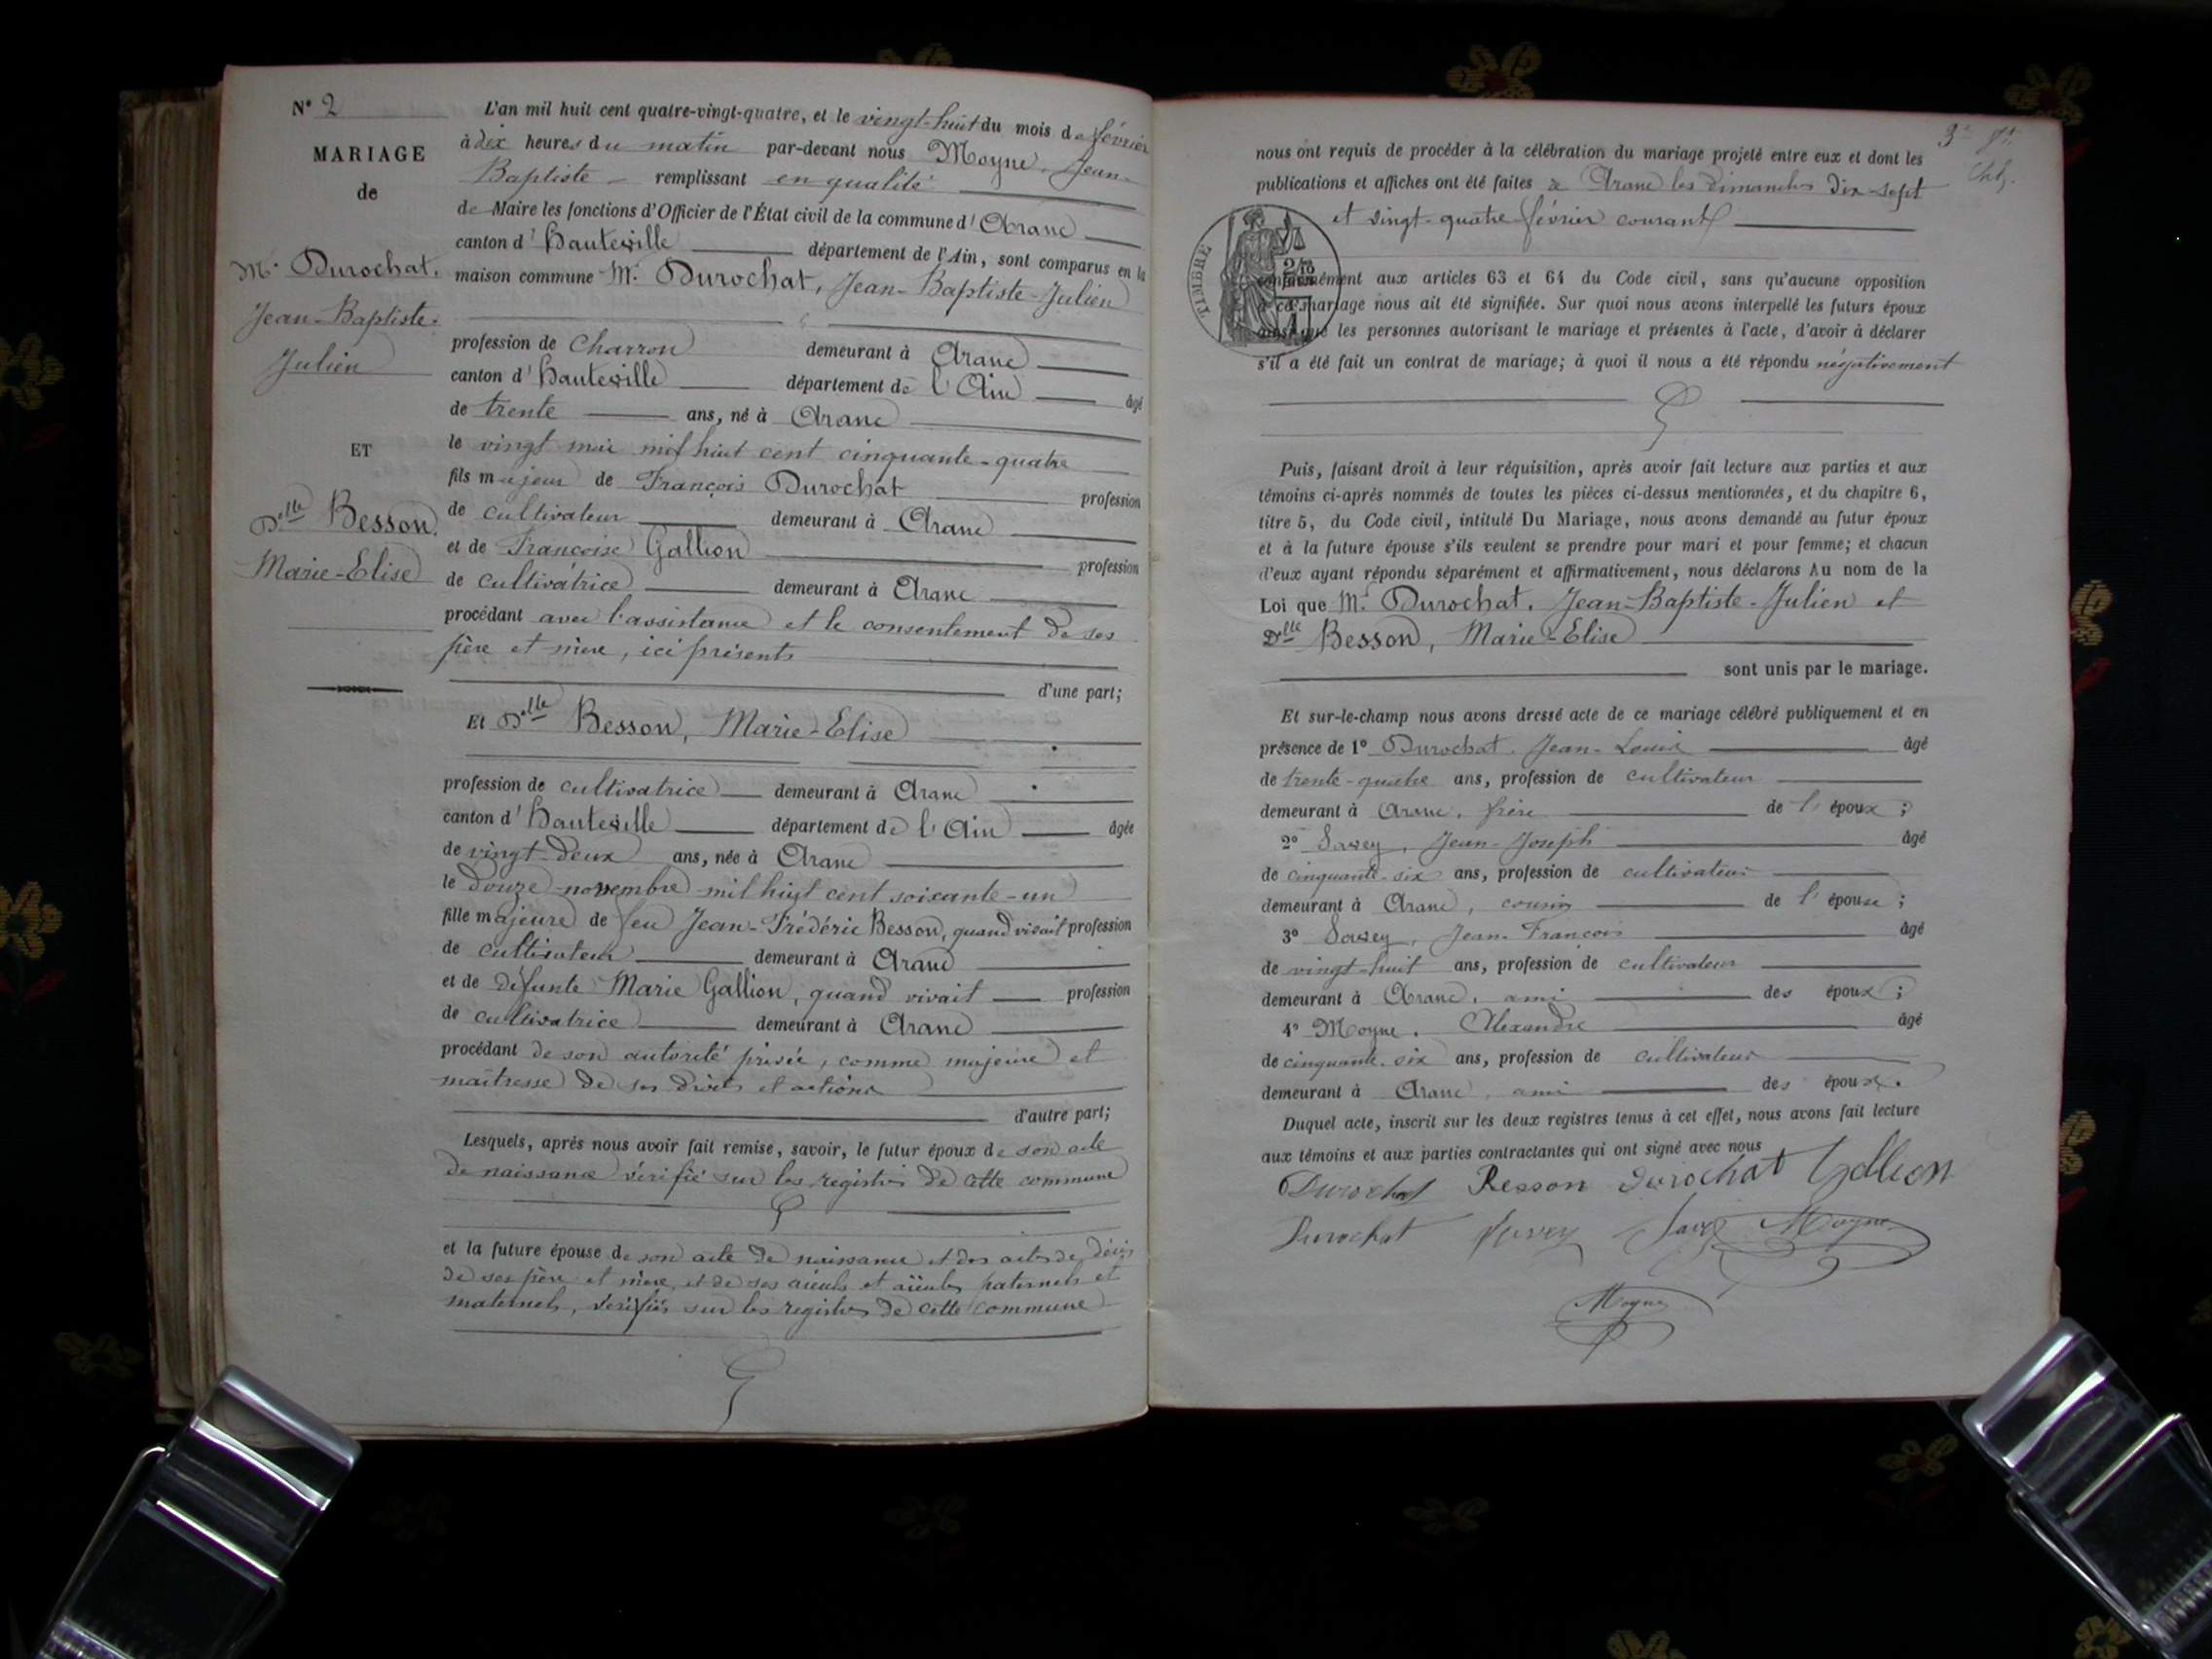 N° 2
MARIAGE
de
Mr Durochat,
Jean-Baptiste-
Julien
ET
Delle Besson,
Marie-Elise
L'an mil huit cent quatre-vingt-quatre, et le vingt-huit du mois de février
à dix heures du matin par-devant nous Moyne, Jean-
Baptiste remplissant en qualité
de Maire les fonctions d'Officier de l'État civil de la commune d'Aranc
canton d'Hauteville département de l'Ain, sont comparus en la
maison commune Mr Durochat, Jean-Baptiste-Julien
profession de Charron demeurant à Aranc
canton d'Hauteville département de l'Ain âgé
de trente ans, né à Aranc
le vingt mai mil huit cent cinquante-quatre
fils majeur de François Durochat profession
de cultivateur demeurant à Aranc
et de Françoise Gallion profession
de cultivatrice demeurant à Aranc
procédant avec l'assistance et le consentement de ses
père et mère, ici présents
d'une part;
Et Delle Besson, Marie-Elise
profession de cultivatrice demeurant à Aranc
canton d'Hauteville département de l'Ain âgée
de vingt-deux ans, née à Aranc
le douze novembre mil huit cent soixante-un
fille majeure de feu Jean-Frédéric Besson, quand vivait profession
de cultivateur demeurant à Aranc
et de défunte Marie Gallion, quand vivait profession
de cultivatrice demeurant à Aranc
procédant de son autorité privée, comme majeure et
maîtresse de ses droits et actions
d'autre part;
Lesquels, après nous avoir fait remise, savoir, le futur époux de son acte
de naissance vérifié sur les registres de cette commune
et la future épouse de son acte de naissance et des actes de décès
de ses père et mère, et de ses aïeuls et aïeules paternels et
maternels, vérifiés sur les registres de cette commune
nous ont requis de procéder à la célébration du mariage projeté entre eux et dont les
publications et affiches ont été faites à Aranc les dimanches dix-sept
et vingt-quatre février courant
TIMBRE
conformément aux articles 63 et 64 du Code civil, sans qu'aucune opposition
à ce mariage nous ait été signifiée. Sur quoi nous avons interpellé les futurs époux
ainsi que les personnes autorisant le mariage et présentes à l'acte, d'avoir à déclarer
s'il a été fait un contrat de mariage; à quoi il nous a été répondu négativement
Puis, faisant droit à leur réquisition, après avoir fait lecture aux parties et aux
témoins ci-après nommés de toutes les pièces ci-dessus mentionnées, et du chapitre 6,
titre 5, du Code civil, intitulé Du Mariage, nous avons demandé au futur époux
et à la future épouse s'ils veulent se prendre pour mari et pour femme; et chacun
d'eux ayant répondu séparément et affirmativement, nous déclarons Au nom de la
Loi que Mr Durochat, Jean-Baptiste-Julien et
Delle Besson, Marie-Elise
sont unis par le mariage.
Et sur-le-champ nous avons dressé acte de ce mariage célébré publiquement et en
présence de 1° Durochat, Jean-Louis âgé
de trente-quatre ans, profession de cultivateur
demeurant à Aranc, frère de l'époux;
2° Savey, Jean-Joseph âgé
de cinquante-six ans, profession de cultivateur
demeurant à Aranc, cousin de l'épouse;
3° Savey, Jean-François âgé
de vingt-huit ans, profession de cultivateur
demeurant à Aranc, ami des époux;
4° Moyne, Alexandre âgé
de cinquante-six ans, profession de cultivateur
demeurant à Aranc, ami des époux.
Duquel acte, inscrit sur les deux registres tenus à cet effet, nous avons fait lecture
aux témoins et aux parties contractantes qui ont signé avec nous
Durochat Besson Durochat Gallion
Durochat Savey Savey Moyne
Moyne